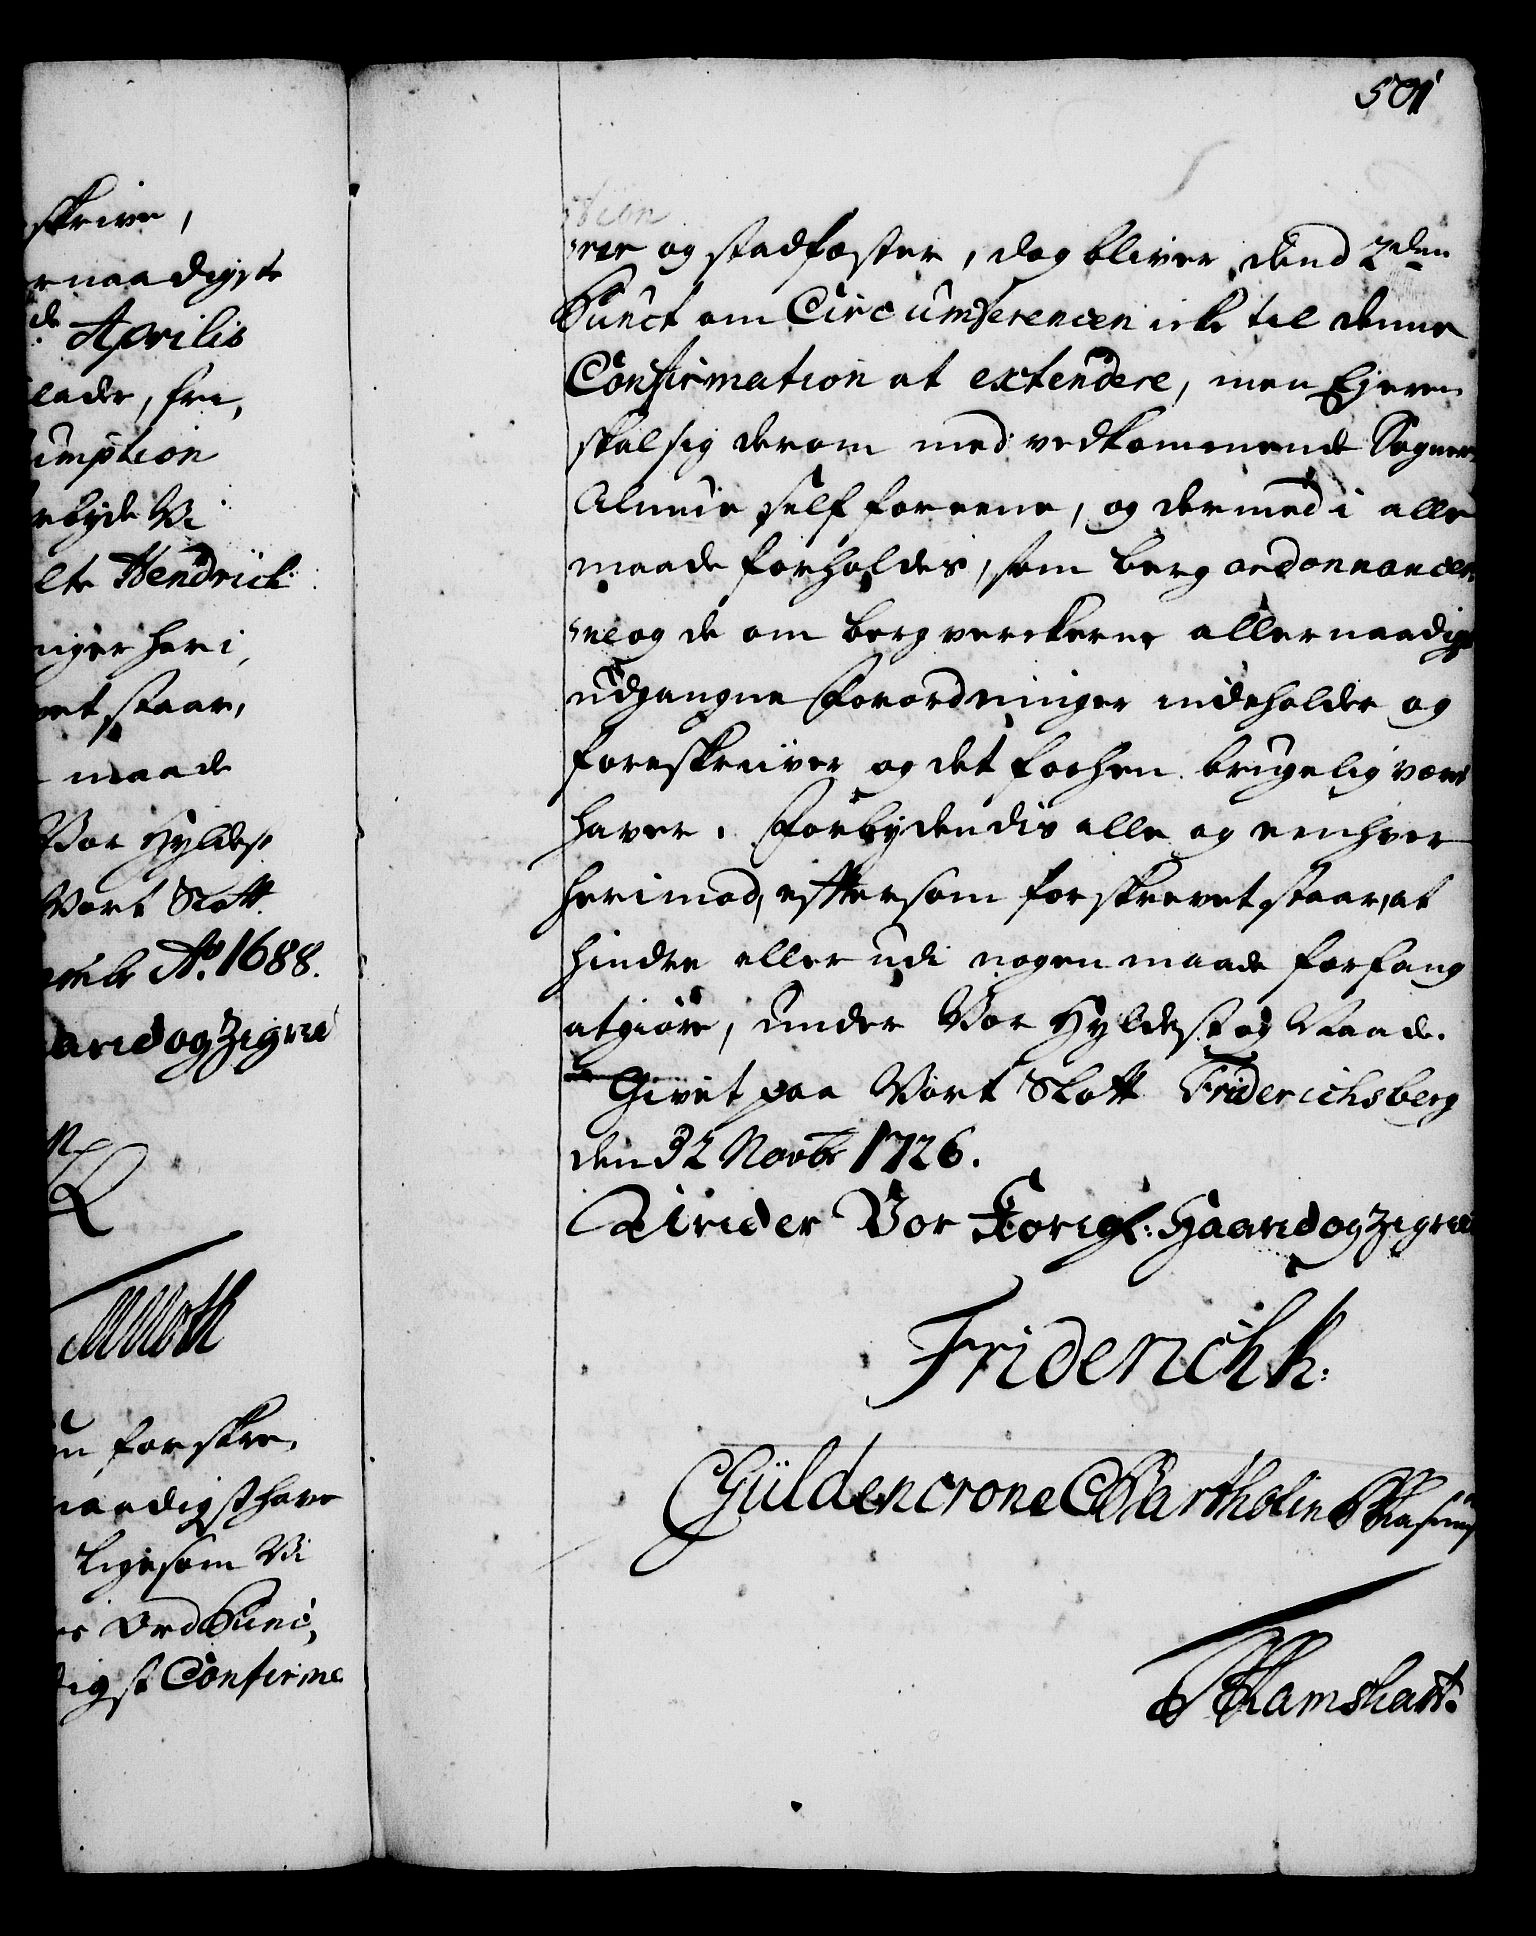 501
skrive,
rnaadigste
de Aprilis
lade, frie,
umption
rbyde Vi
lte Hendrich
niger heri,
vet staar,
maade
Vor Hyldest
Vort Slott
Ao. 1688.
aand og Zignet
TMMoth
forskre,
naadigst have
ligesom Vi
Ord Punc,
digst Confirme
rer og stadfæster, dog bliver dend 2den
Punct om Circumferencen icke til denne
Confirmation at extendere, men Ejeren
skal sig derom med vedkommende Sogners
Almue self foreene, og dermed i alle
maade forholdes, som berg ordonnancer,
ne og de om bergverckerne allernaadigst
udgangne Forordninger indeholder og
foreskriver og det forhen brugelig været
haver. Forbydendis alle og eenhver
herimod, eftersom forskrevet staar, at
hindre eller udi nogen maade forfang
at giøre, under Vor Hyldest og Naade.
Givet paa Vort Slott Friderichsberg
den 32 Novbr 1726.
Under Vor Kongl: Haand og Zignet
Friderich R:
CGüldencrone CBartholin
TRamshart.